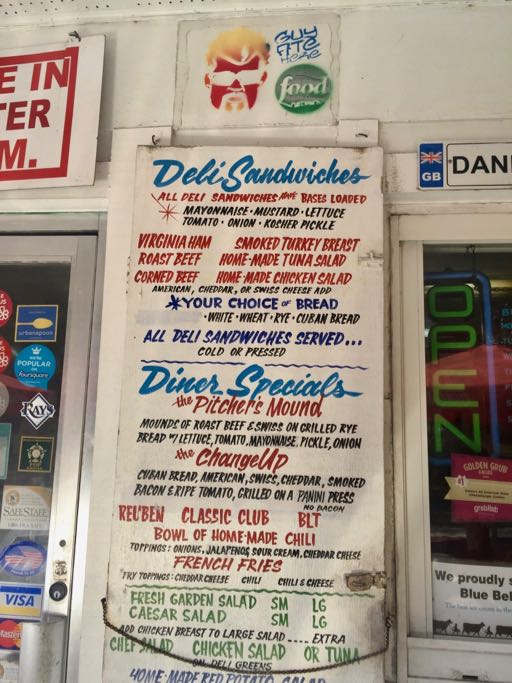 GUY
ATE
HERE
food
E IN
TER
M.
GB
DAN
Deli Sandwiches
ALL DELI SANDWICHES HAVE BASES LOADED
MAYONNAISE • MUSTARD • LETTUCE
TOMATO • ONION • KOSHER PICKLE
VIRGINIA HAM SMOKED TURKEY BREAST
ROAST BEEF HOME-MADE TUNA SALAD
CORNED BEEF HOME-MADE CHICKEN SALAD
AMERICAN, CHEDDAR, OR SWISS CHEESE ADD
*YOUR CHOICE OF BREAD
•WHITE •WHEAT •RYE •CUBAN BREAD
ALL DELI SANDWICHES SERVED...
COLD OR PRESSED
Diner Specials
the Pitcher's Mound
MOUNDS OF ROAST BEEF & SWISS ON GRILLED RYE
BREAD W/ LETTUCE, TOMATO, MAYONNAISE, PICKLE, ONION
the ChangeUp
CUBAN BREAD, AMERICAN, SWISS, CHEDDAR, SMOKED
BACON & RIPE TOMATO, GRILLED ON A PANINI PRESS
NO BACON
REUBEN CLASSIC CLUB BLT
BOWL OF HOME-MADE CHILI
TOPPINGS: ONIONS, JALAPENOS, SOUR CREAM, CHEDDAR CHEESE
FRENCH FRIES
FRY TOPPINGS: CHEDDAR CHEESE CHILI CHILI & CHEESE
FRESH GARDEN SALAD SM LG
CAESAR SALAD SM LG
ADD CHICKEN BREAST TO LARGE SALAD .... EXTRA
CHEF SALAD CHICKEN SALAD OR TUNA
ON DELI GREENS
HOME-MADE RED POTATO SALAD
urbanspoon
WE'RE
POPULAR
ON
foursquare
RAYS
SAFESTAFF
VISA
Master
OPEN
GOLDEN GRUB
grubHub
We proudly s
Blue Bel